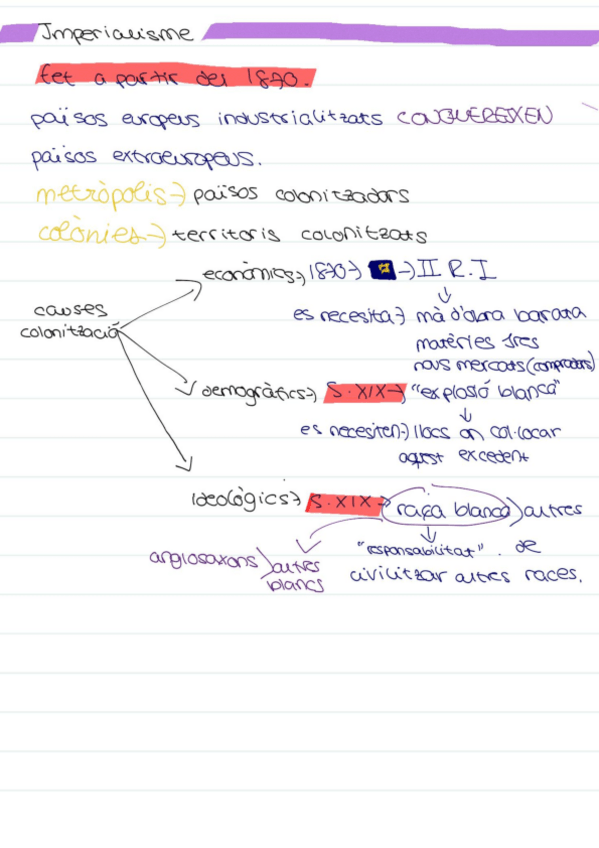 Imperialisme
fet a partir del 1870.
països europeus industrialitzats CONQUEREIXEN
països extraeuropeus.
metròpolis → països colonitzadors
colònies → territoris colonitzats
econòmics → 1870 → → II R.I
causes
colonització
es necesita → mà d'obra barata
matèries
nous mercats (compradors)
demogràfics → S.XIX → "explosió blanca"
es necesiten → llocs on col·locar
aquest excedent
Ideològics → S.XIX → raça blanca > altres
"responsabilitat". de
civilitzar altres races.
anglosaxons > altres
blancs